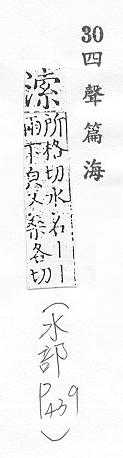 30 四聲篇海
溹
所格切水名丨丨
雨下皃又桑各切
(水部 P439)